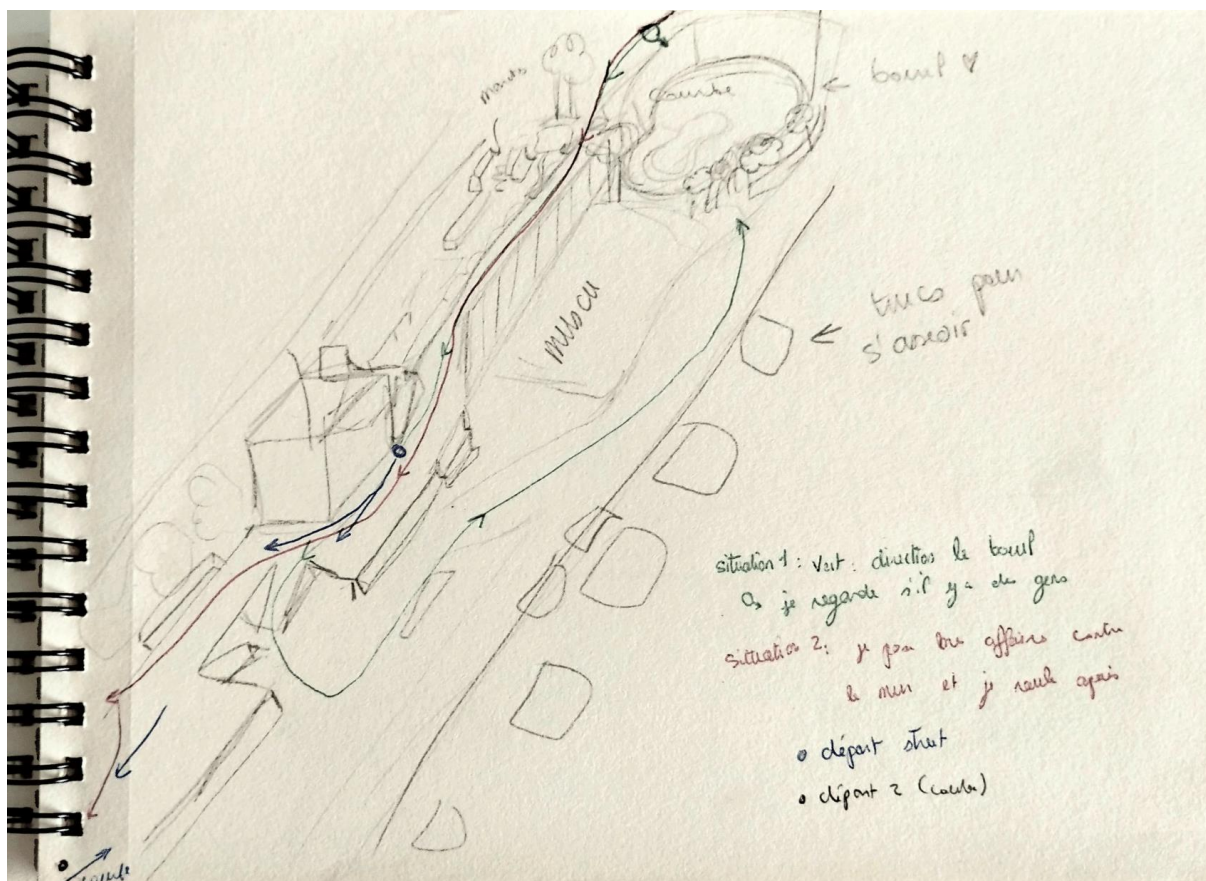 bowl ♡
courbe
marches
muscu
trucs pour
s'asseoir
situation 1 : vert : direction le bowl
je regarde s'il y a des gens
situation 2 : je pose mes affaires contre
le mur et je roule après
départ street
départ 2 (courbe)
courbe